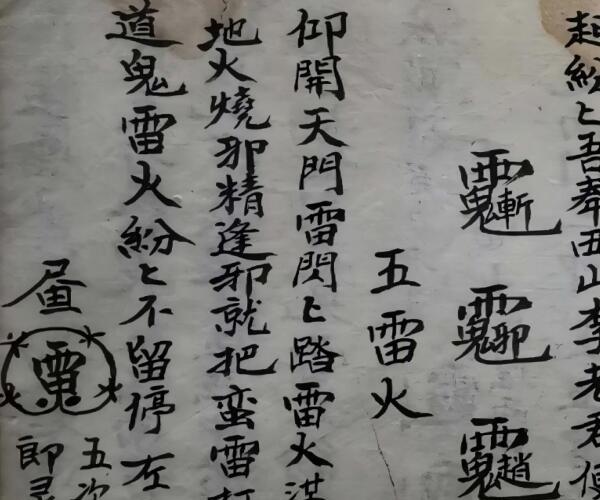 起紛々吾奉西山李老君
五雷火
仰開天門雷閃々踏雷火
地火燒邪精逢邪就把蛮雷打
道鬼雷火紛々不留停左
五次
郎